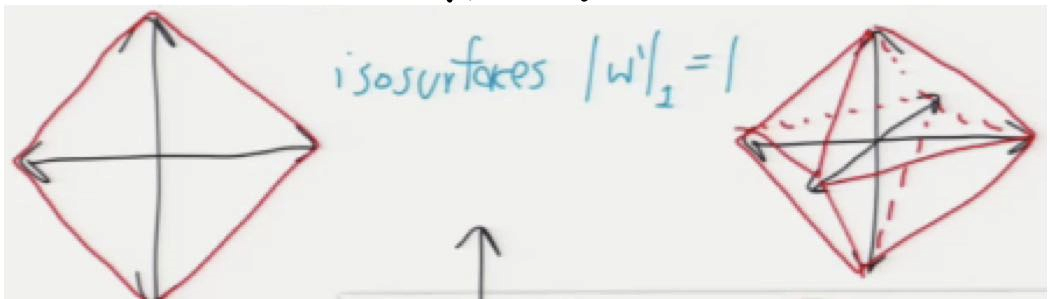 isosurfaces |w'|₁ = 1